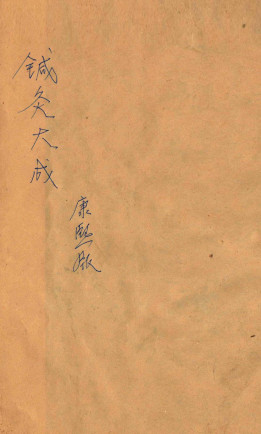 鍼灸大成
康熙版